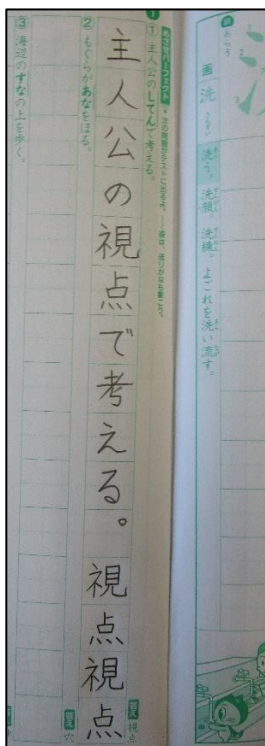 画 洗
洗う。 洗顔。 洗練。 よごれを洗い流す。
めざせパーフェクト
① 主人公のしてんで考える。
主人公の視点で考える。 視点視点
答え 視点
② もぐらがあなをほる。
答え 穴
③ 海辺のすなの上を歩く。